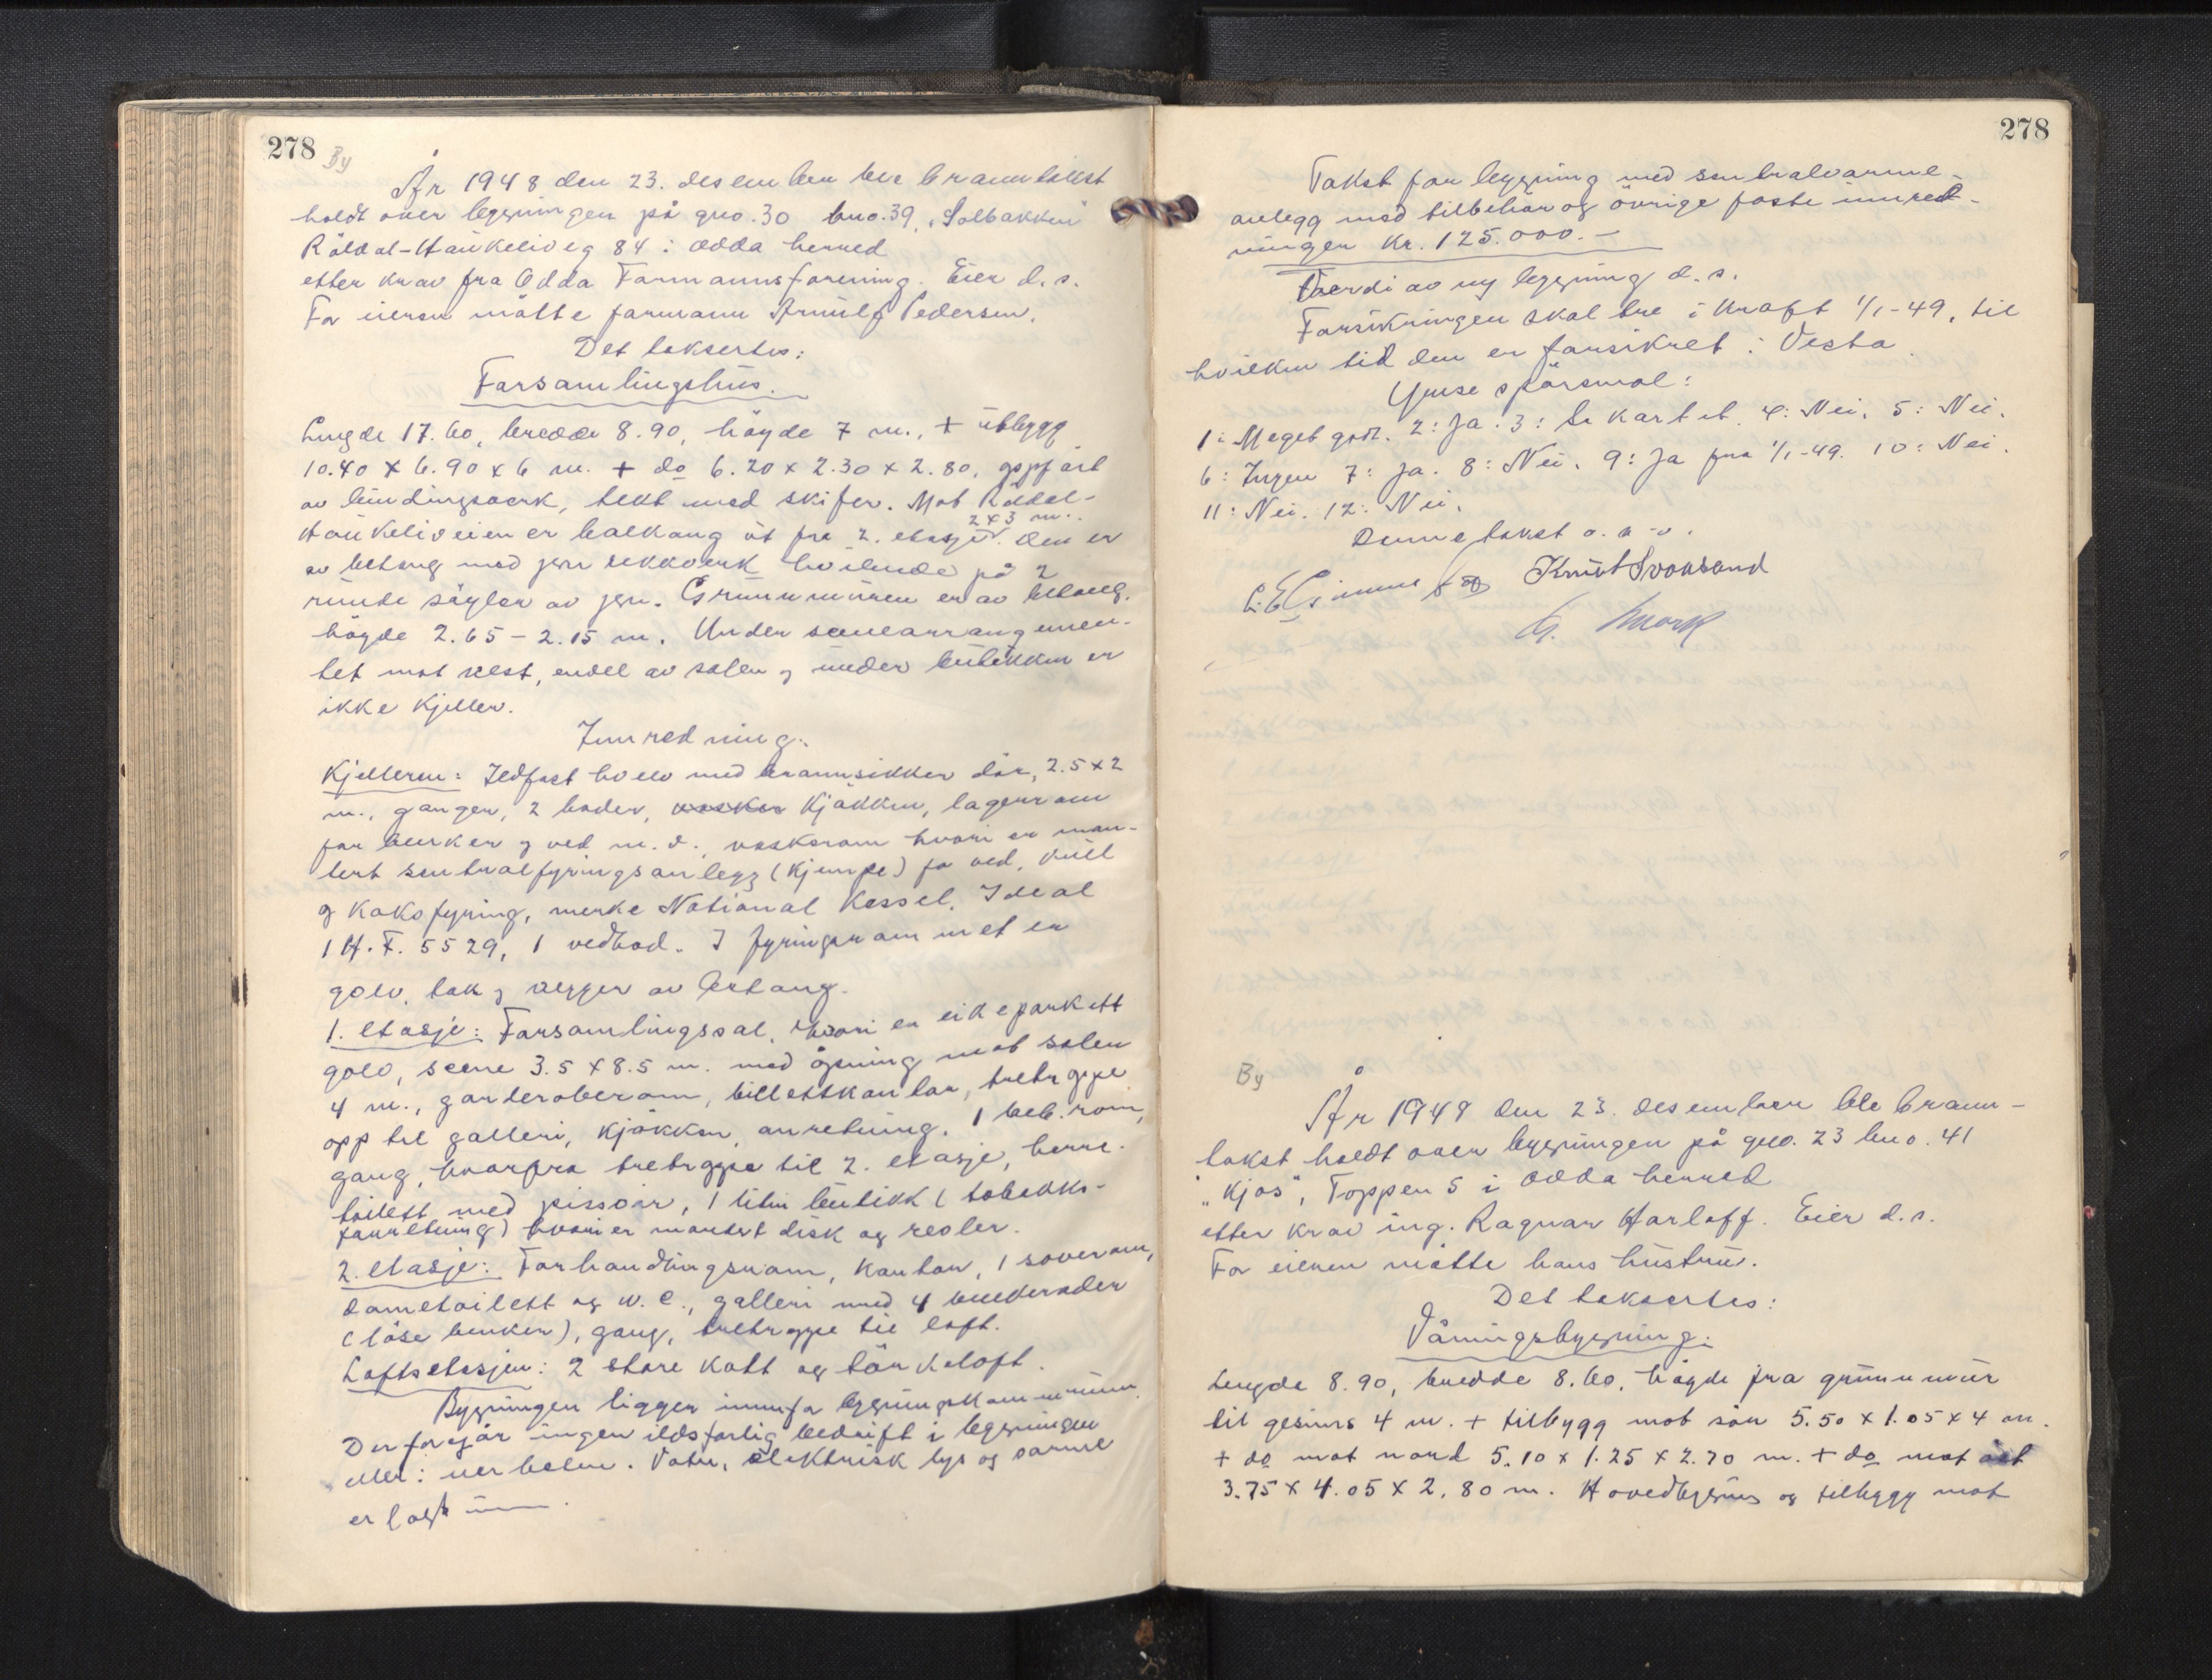 278 By
År 1948 den 23. desember ble branntakst
holdt over bygningen på gno. 30 bno. 39, "Solbakken"
Röldal-Haukeliveg 84 i Odda herred
etter krav fra Odda Formannsforening. Eier d. s.
For eieren mötte formann Arnulf Pedersen.
Det taksertes:
Forsamlingshus.
Lengde 17.60, bredde 8.90, höyde 7 m., + utbygg
10.40 x 6.90 x 6 m. + do 6.20 x 2.30 x 2.80, oppfört
av bindingsverk, tekt med skifer. Mot Röldal-
2 x 3 m.
Haukeliveien er balkong ut fra 2. etasje. Den er
av betong med jern rekkverk hvilende på 2
runde söyler av jern. Grunnmuren er av betong,
höyde 2.65 - 2.15 m. Under scenearrangemen-
tet mot vest, endel av salen og under butikken er
ikke kjeller.
Innredning:
Kjelleren: Ildfast hvelv med brannsikker dör, 2.5 x 2
m., ganger, 2 boder, vasker kjökken, lagerrom
for benker og ved m. v., vaskerom hvori er mon-
tert sentralfyringsanlegg (kjempe) for ved, kull
og koksfyring, merke National Kessel. Ideal
1 H. F. 5529, 1 vedbod. I fyringsrommet er
golv, tak og vegger av betong.
1. etasje: Forsamlingssal, hvori er eikeparkett
golv, scene 3.5 x 8.5 m. med åpning mot salen
4 m., garderoberom, billettkontor, tretrapp
opp til galleri, kjökken, anretning. 1 beb. rom,
gang, hvorfra tretrappe til 2. etasje, herre-
toilett med pissoir, 1 liten butikk (tobakks-
forretning) hvori er montert disk og reoler.
2. etasje: Forhandlingsrom, kontor, 1 soverom,
dametoilett og W. C., galleri med 4 benkerader
(löse benker), gang, tretrappe til loft.
Loftsetasjen: 2 store kott og törkeloft.
Bygningen ligger innenfor bygningskommunen.
Der foregår ingen ildsfarlig bedrift i bygningen
eller i nærheten. Vatn, elektrisk lys og varme
er lagt inn.
278
Takst for bygning med sentralvarme-
anlegg med tilbehör og övrige faste innred-
ninger Kr. 125.000.-
Verdi av ny bygning d. s.
Forsikringen skal tre i kraft 1/1-49, til
hvilken tid den er forsikret i Vesta.
Ymse spörsmål:
1: Meget god. 2: Ja. 3: Se kartet. 4: Nei. 5: Nei.
6: Ingen 7: Ja. 8: Nei. 9: Ja fra 1/1-49. 10: Nei.
11: Nei. 12: Nei.
Denne takst o. s. v.
Knut Svonsand
By
År 1948 den 23. desember ble brann-
takst holdt over bygningen på gno. 23 bno. 41
"Kjos", Toppen 5 i Odda herred
etter krav ing. Ragnar Harloff. Eier d. s.
For eieren mötte hans hustru.
Det taksertes:
Våningsbygning:
Lengde 8.90, bredde 8.60, höyde fra grunnmur
til gesims 4 m. + tilbygg mot sör 5.50 x 1.05 x 4 m.
+ do mot nord 5.10 x 1.25 x 2.70 m. + do mot öst
3.75 x 4.05 x 2.80 m. Hovedbygning og tilbygg mot